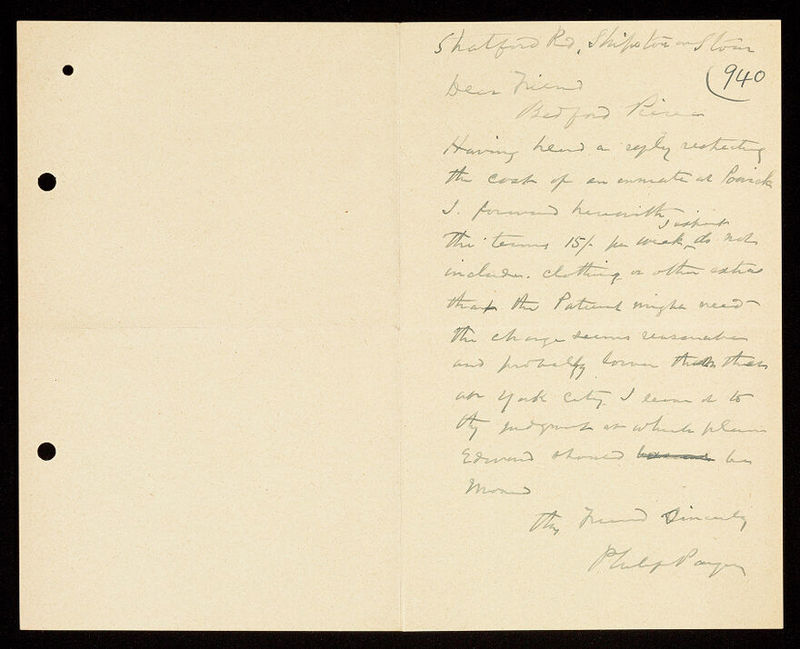 Shatford Rd, Shipston on Stour
940
Dear Friend
Bedford Pierce
Having heard a reply respecting
the cost of an inmate at Powick
I forward herewith
I expect
the terms 15/- per week, do not
include clothing or other extras
that the Patient might need
the charge seems reasonable
and probably lower than
at York City. I leave it to
thy judgment at which place
Edward should be
Moved
thy Friend Sincerely
Philip